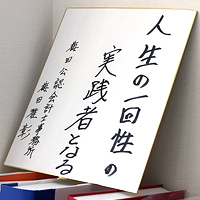 人生の一回性の
実践者となる
梅田公認会計士事務所
梅田雅彰